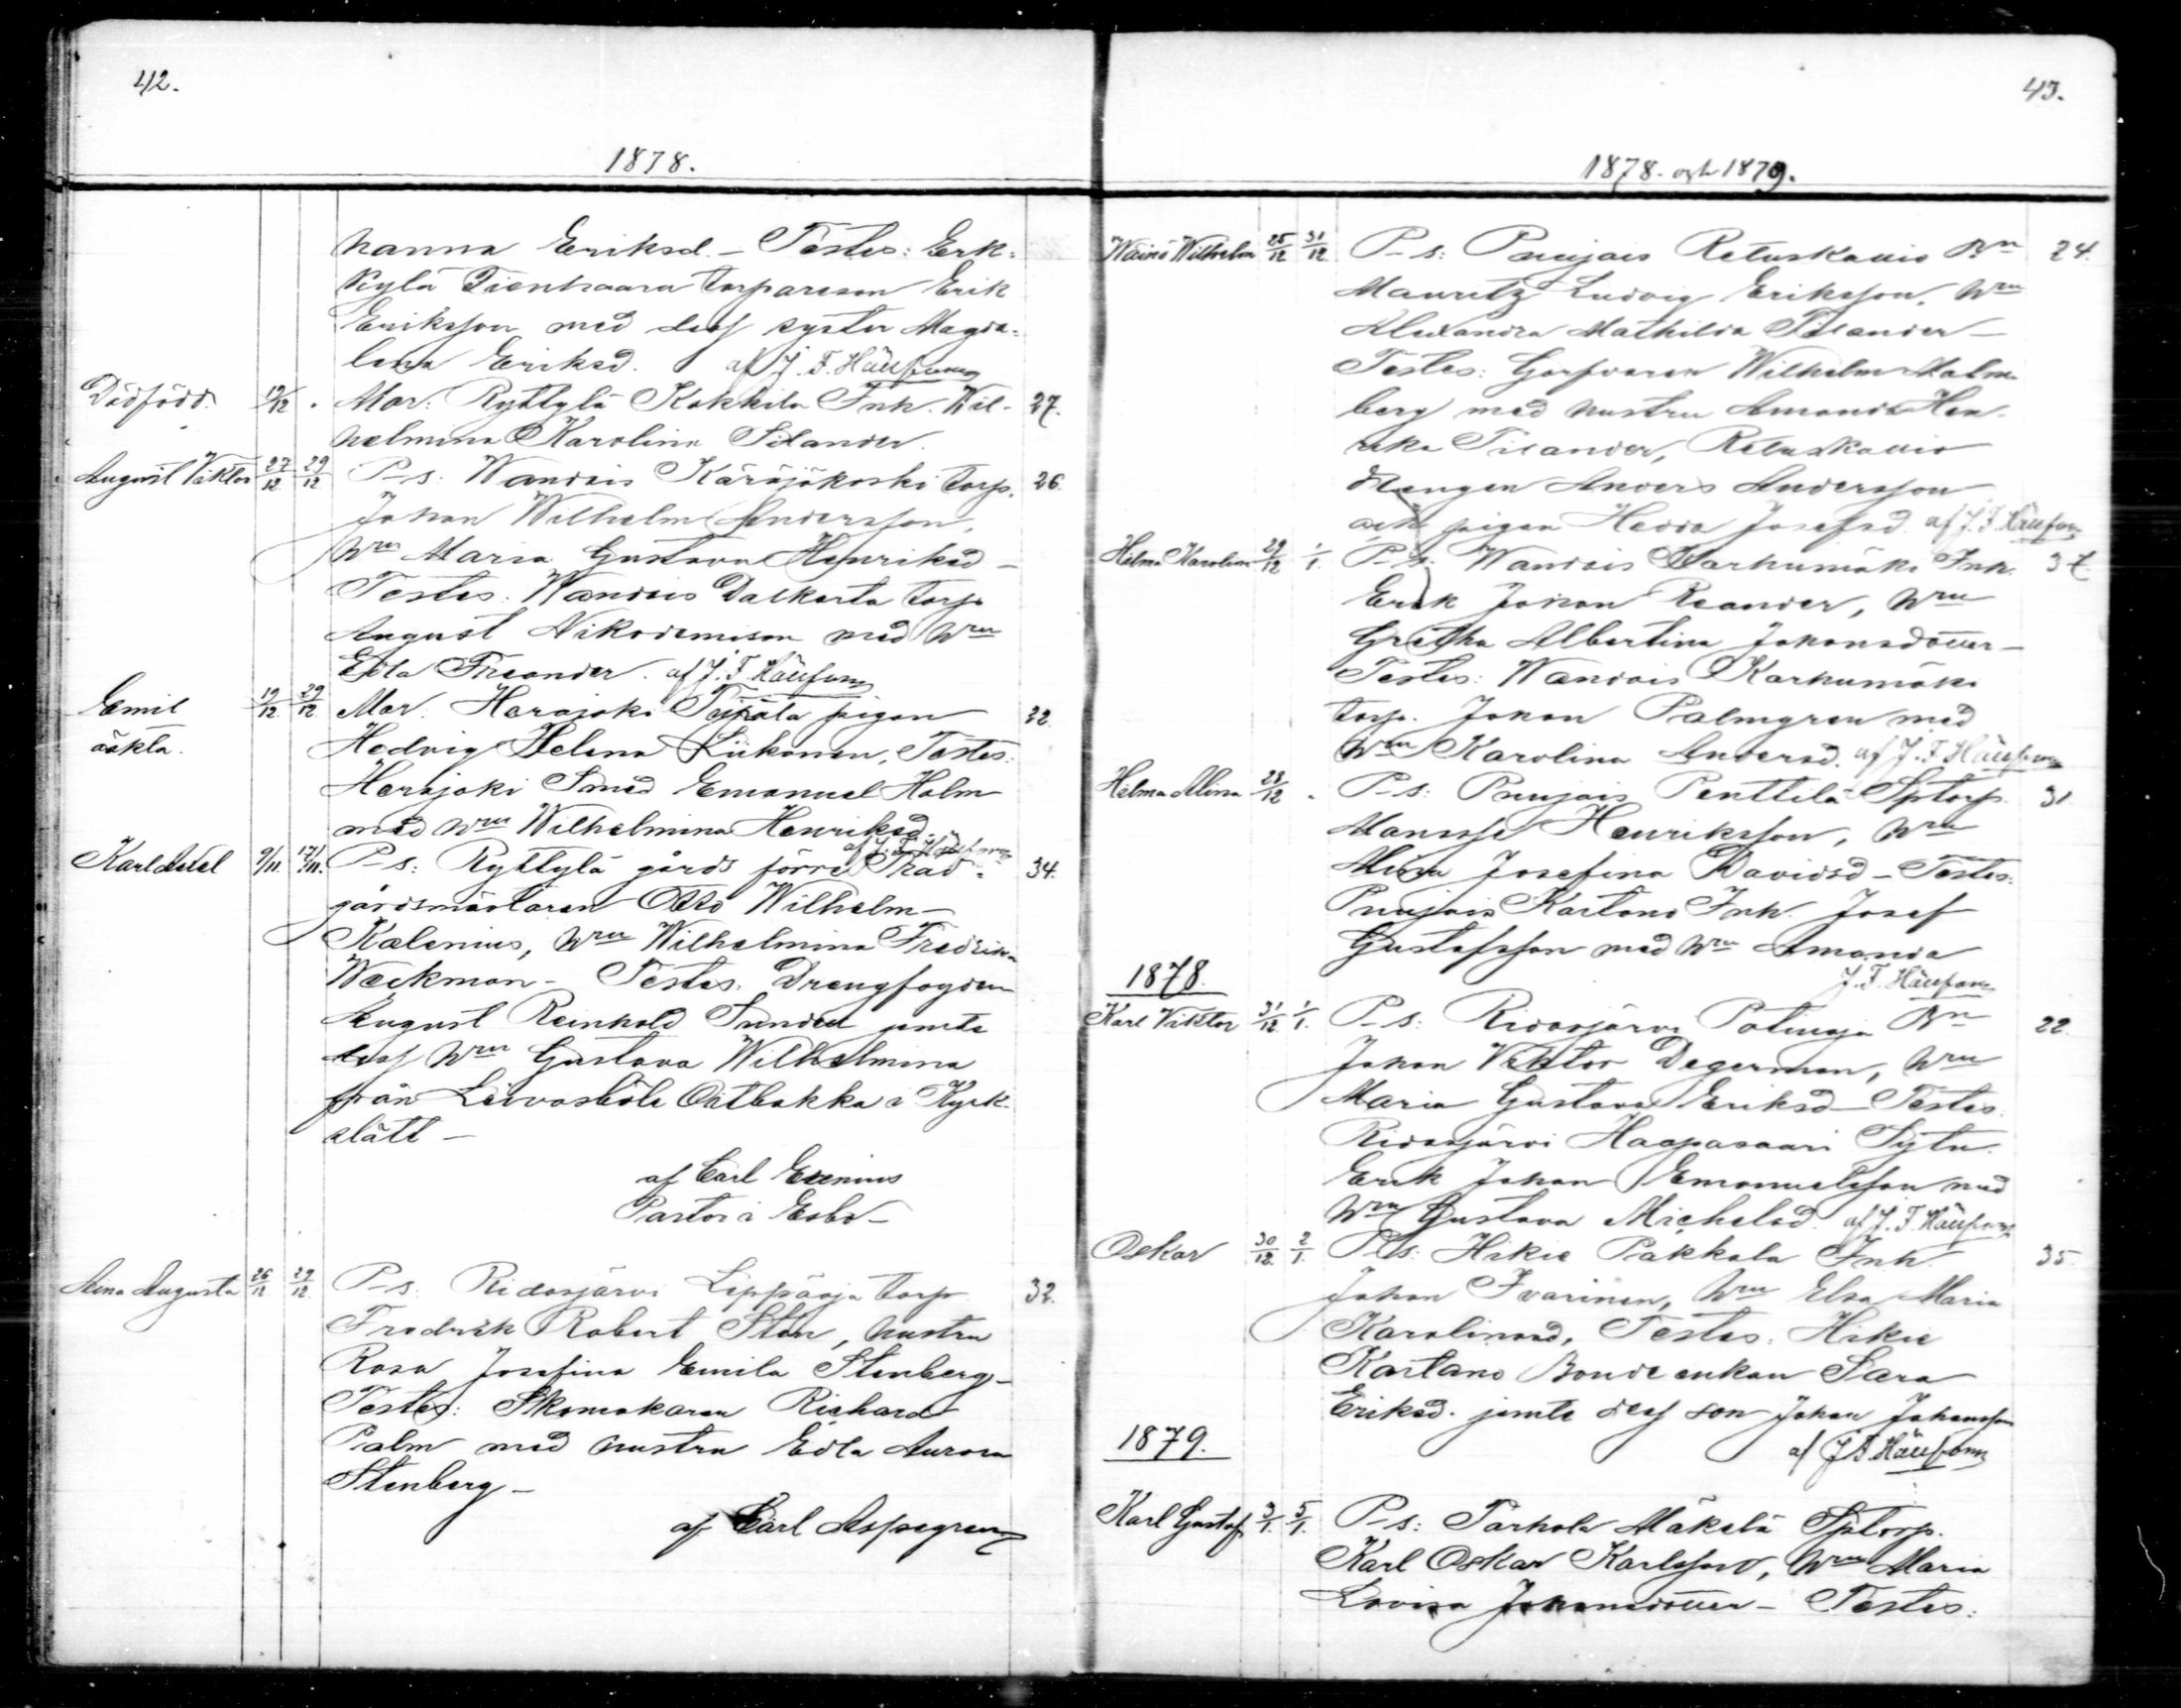 42.
1878.
hanna Eriksd. – Testes: Erk-
kylä Tienhaara torpareson Erik
Eriksson med dess syster Magda-
lena Eriksd. af J. F.
Dödfödd. 19/12 . Mor: Ryttylä Kokkila Inh. Wil- 27.
helmina Karolina Silander.
August Viktor 27/12 29/12 P–s: Wandois Käräjäkoski torp. 26.
Johan Wilhelm Andersson,
hru Maria Gustava Henriksd –
Testes: Wandois Dalkarta torp
August Nikodemison med hru
Edla Freander. af J. F.
Emil 19/12 29/12 Mor. Herajoki pigan 32.
oäkta. Hedvig Helena Liikanen, Testes:
Herajoki Smed Emanuel Holm
med hru Wilhelmina Henriksd.
af J. F.
Karl Axel 9/11. 17/11. P–s: Ryttylä gårds förre Träd- 34.
gårdsmästaren Otto Wilhelm
Kalenius, hru Wilhelmina Fredrika
Weckman – Testes. Drengfogden
August Reinhold Sundell jemte
dess hru Gustava Wilhelmina
från i Kyrk-
slätt –
af Carl
Pastor i Esbo –
Alma Augusta 26/12 29/12 P–s: Ridasjärvi Leppäoja torp 32.
Fredrik Robert Sten, hustru
Rosa Josefina Emila Stenberg –
Testes: Skomakaren Richard
Palm med hustru Edla Aurora
Stenberg –
af Carl Aspegren
43.
1878. och 1879.
Wäinö Wilhelm 25/12 31/12 P–s: Puujais Retuskallio Bn 24.
Mauritz Ludvig Eriksson, hru
Alexandra Mathilda Tilander –
Testes: Garfvaren Wilhelm Malm-
berg med hustru Amanda Hen-
rika Tilander, Retuskallio
drengen Anders Andersson
och pigan Hedda Josefsd. af J. F.
Hilma Karolina 29/12 1/1. P–s: Wandois Karhumäki Inh. 37.
Erik Johan Reander, hru
Gretha Albertina Johansdotter –
Testes: Wandois Karhumäki
torp. Johan Palmgren med
hru Karolina Andersd. af J. F.
Hilma Alina 28/12 . P–s: Puujais Penttilä Sptorp. 31
Manasse Henriksson, hru
Josefina Davidsd – Testes:
Puujais Kartano Inh. Josef
Gustafsson med hru Amanda
J. F.
1878.
Karl Viktor 31/12 1/1. P–s: Ridasjärvi Palinoja Bn 22.
Johan Viktor Degerman, hru
Maria Gustava Eriksd – Testes.
Ridasjärvi Haapasaari Sytn.
Erik Johan Emanuelsson med
hru Gustava Michelsd. af J. F.
Oskar 30/12. 2/1. P–s: Hikie Pakkala Inh. 35.
Johan Ivarinen, hru Elsa Maria
Karolinasd, Testes: Hikie
Kartano Bonde enkan Sara
Eriksd. jemte dess son Johan Johansson
af J. F.
1879.
Karl Gustaf 3/1. 5/1. P–s: Tarhola Mäkelä Sptorp.
Karl Oskar Karlsson, hru Maria
Lovisa Johansdotter – Testes: